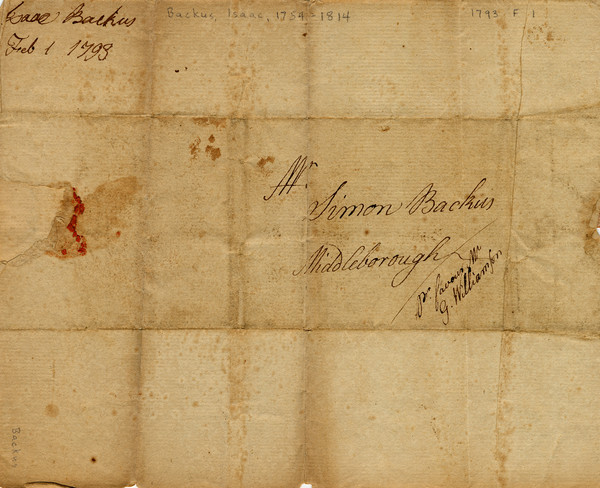 Isaac Backus
Feb 1 1793
Backus, Isaac, 1754-1814
1793 F 1
Mr.
Simon Backus
Middleborough
Pr. favour Mr
G. Williamson
Backus